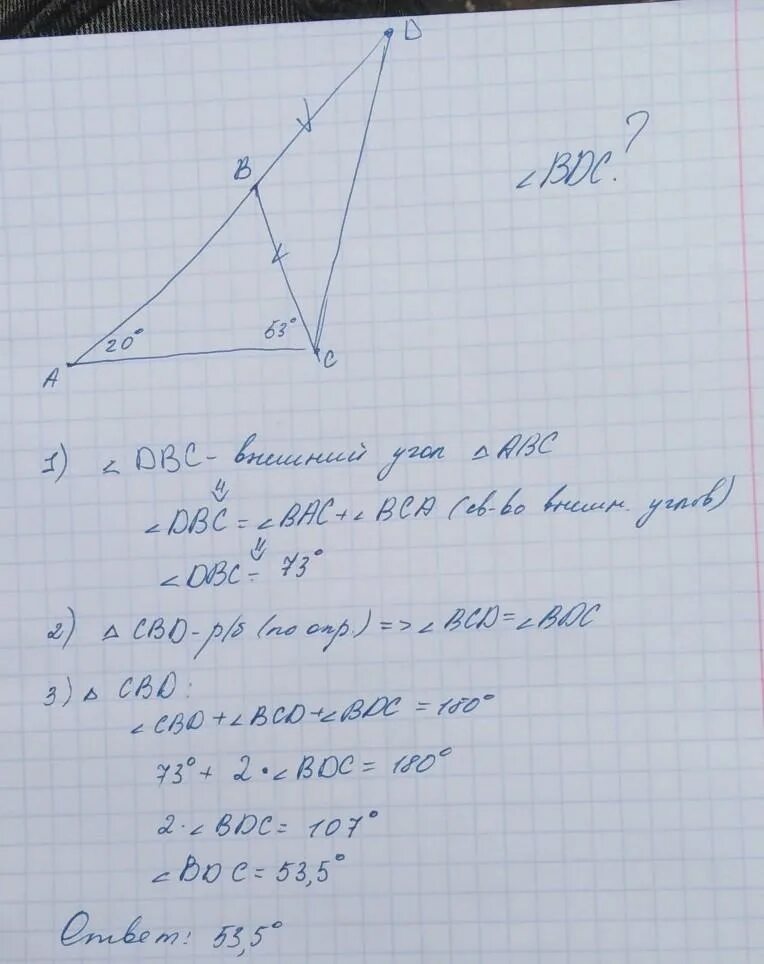 D
B
∠BDC?
20°
53°
A
C
1) ∠DBC - внешний угол △ABC
⇓
∠DBC = ∠BAC + ∠BCA (св-во внешн. углов)
⇓
∠DBC = 73°
2) △ CBD - р/б (по опр.) => ∠BCD = ∠BDC
3) △ CBD:
∠CBD + ∠BCD + ∠BDC = 180°
73° + 2 · ∠BDC = 180°
2 · ∠BDC = 107°
∠BDC = 53,5°
Ответ: 53,5°